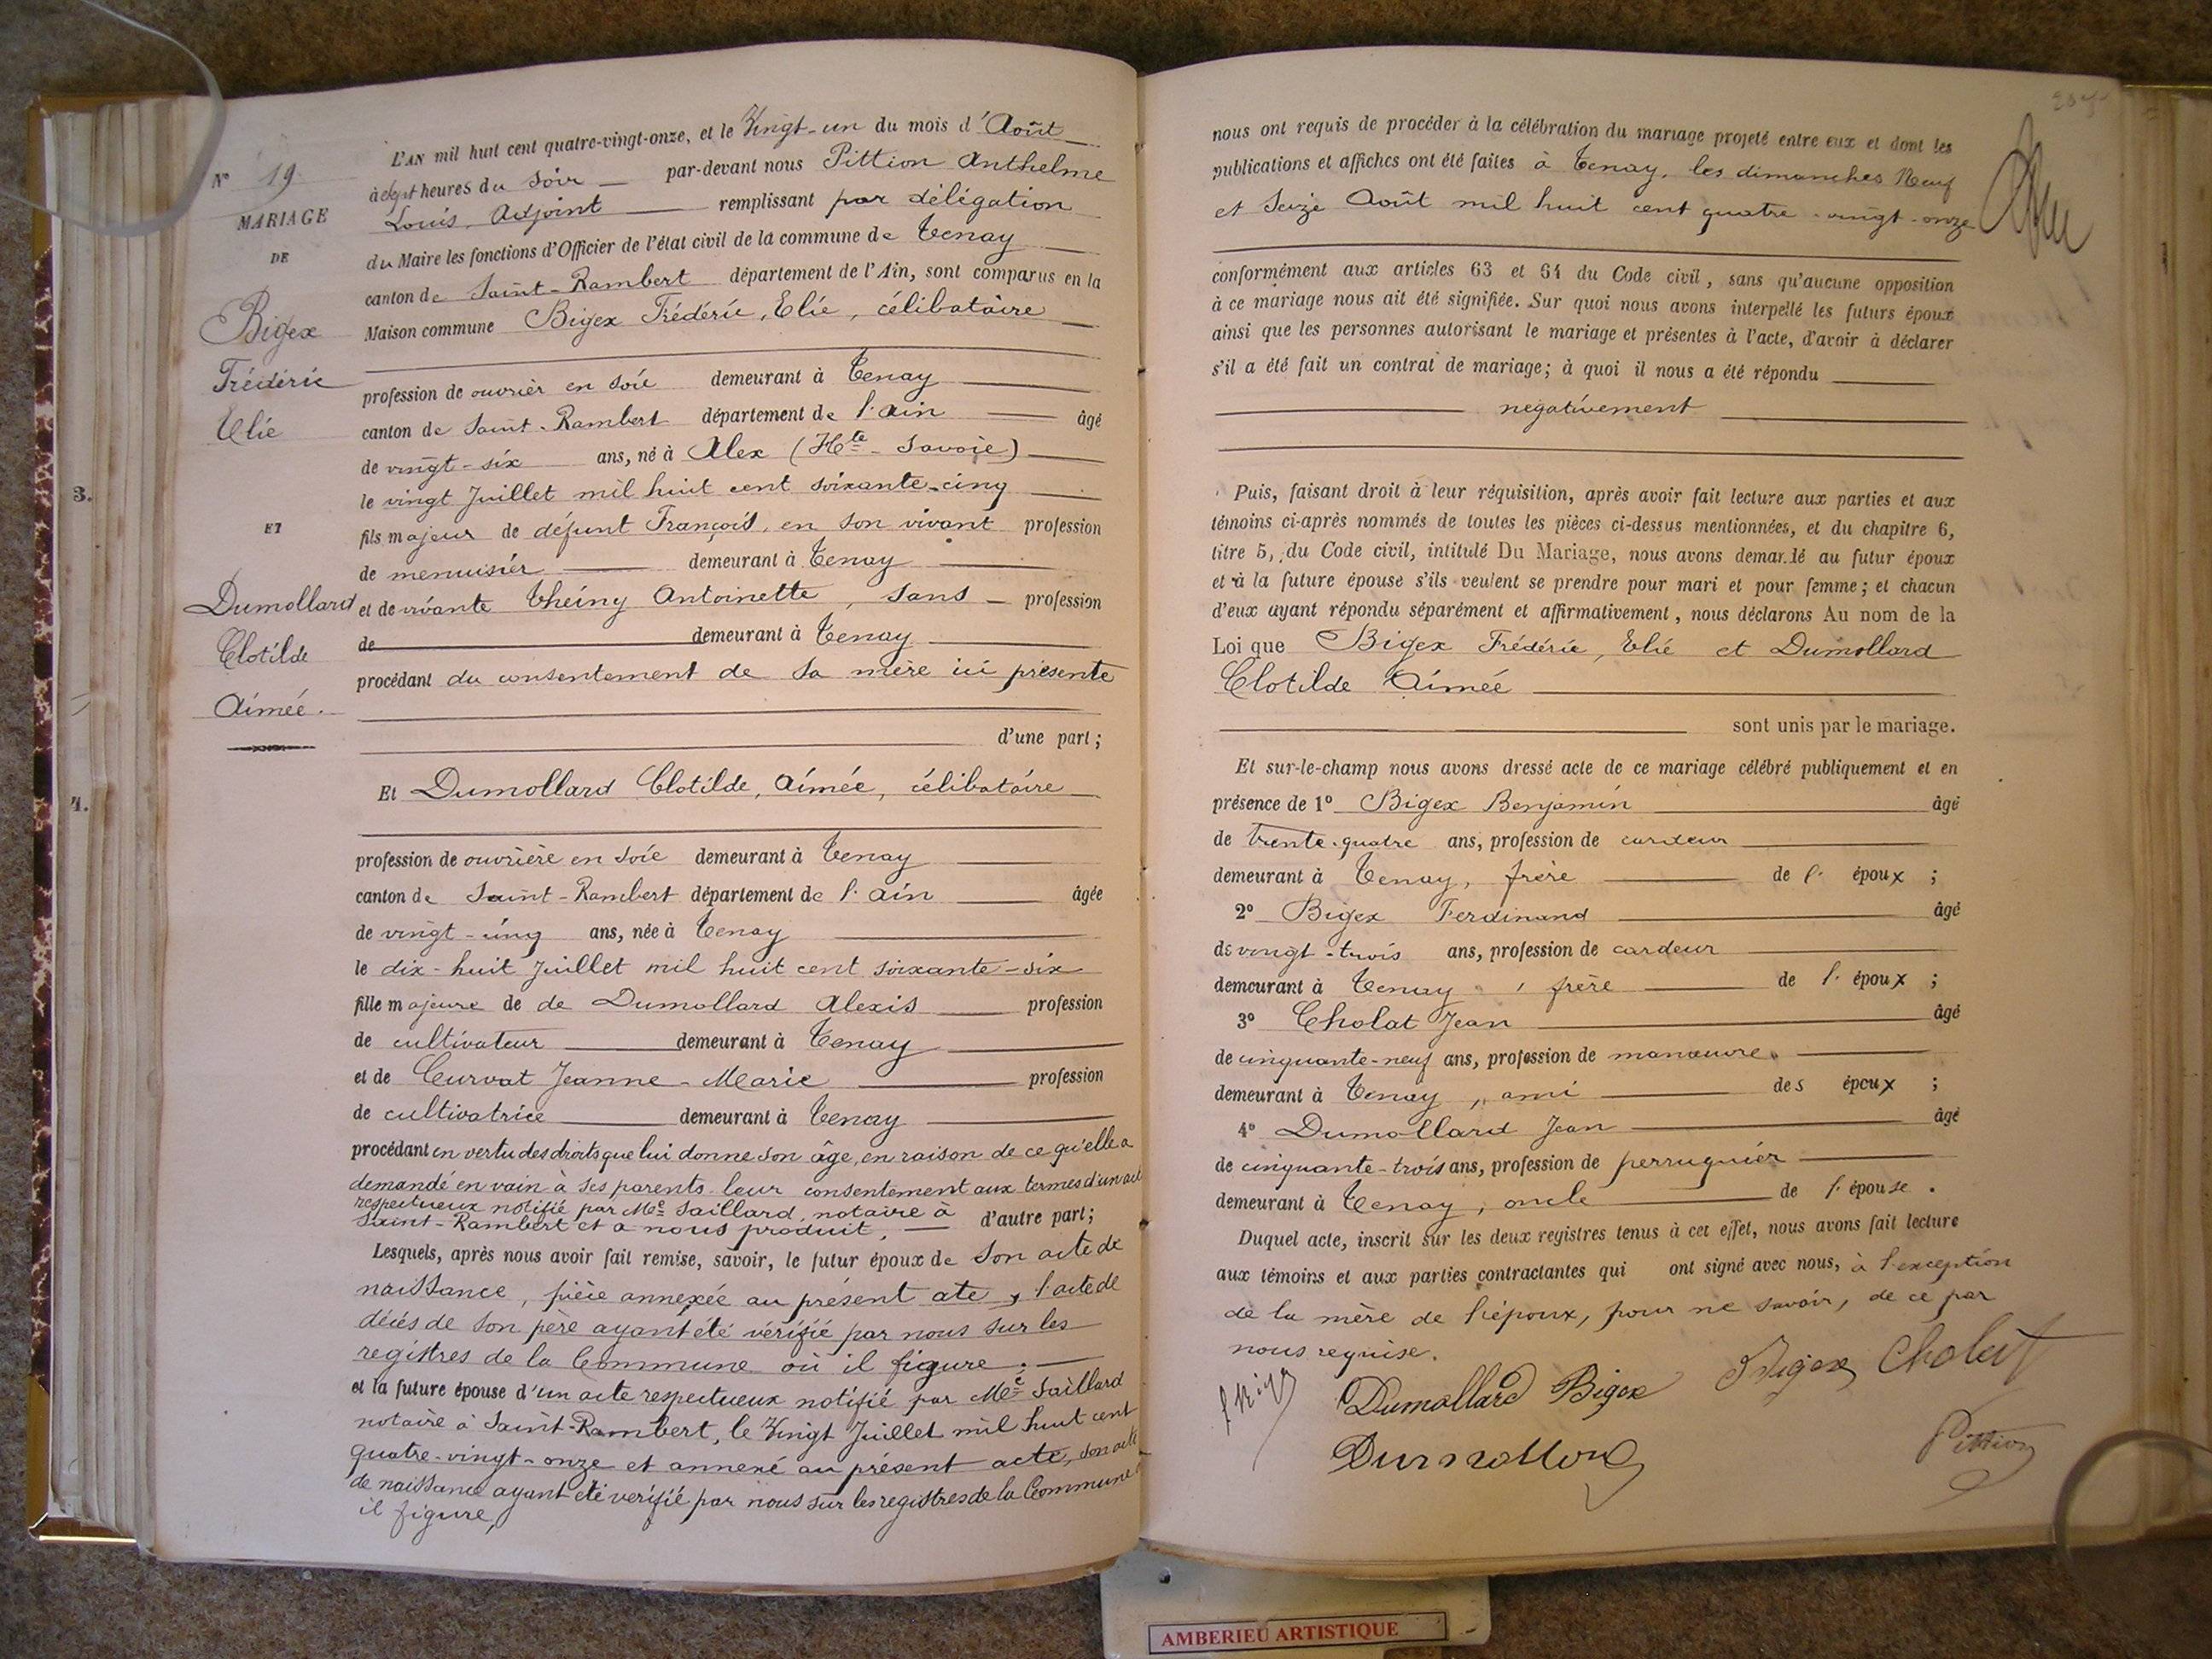 L'AN mil huit cent quatre-vingt-onze, et le Vingt-un du mois d'Août
N° 19 à sept heures du soir par-devant nous Pittion Anthelme
MARIAGE Louis, Adjoint remplissant par délégation
DE du Maire les fonctions d'Officier de l'état civil de la commune de Tenay
canton de Saint-Rambert département de l'Ain, sont comparus en la
Bigex Maison commune Bigex Frédéric, Elie, célibataire
Frédéric profession de ouvrier en soie demeurant à Tenay
Elie canton de Saint-Rambert département de l'Ain âgé
de vingt-six ans, né à Alex (Hte-Savoie)
3. le vingt Juillet mil huit cent soixante-cinq
ET fils majeur de défunt François, en son vivant profession
de menuisier demeurant à Tenay
Dumollard et de vivante Antoinette, sans profession
Clotilde de demeurant à Tenay
procédant du consentement de sa mère ici présente
Aimée.
d'une part;
4. Et Dumollard Clotilde, Aimée, célibataire
profession de ouvrière en soie demeurant à Tenay
canton de Saint-Rambert département de l'Ain âgée
de vingt-cinq ans, née à Tenay
le dix-huit Juillet mil huit cent soixante-six
fille majeure de de Dumollard Alexis profession
de cultivateur demeurant à Tenay
et de Curvat Jeanne-Marie profession
de cultivatrice demeurant à Tenay
procédant en vertu des droits que lui donne son âge, en raison de ce qu'elle a
demandé en vain à ses parents leur consentement aux termes d'un acte
respectueux notifié par Me Saillard, notaire à
Saint-Rambert et a nous produit, d'autre part;
Lesquels, après nous avoir fait remise, savoir, le futur époux de son acte de
naissance, pièce annexée au présent ate, l'acte de
décès de son père ayant été vérifié par nous sur les
registres de la Commune où il figure;
et la future épouse d'un acte respectueux notifié par Me Saillard
notaire à Saint-Rambert, le Vingt Juillet mil huit cent
quatre-vingt-onze et annexé au présent acte, son acte
de naissance ayant été verifié par nous sur les registres de la Commune
il figure,
nous ont requis de procéder à la célébration du mariage projeté entre eux et dont les
publications et affiches ont été faites à Tenay, les dimanches Neuf
et Seize Août mil huit cent quatre-vingt-onze
conformément aux articles 63 et 64 du Code civil, sans qu'aucune opposition
à ce mariage nous ait été signifiée. Sur quoi nous avons interpellé les futurs époux
ainsi que les personnes autorisant le mariage et présentes à l'acte, d'avoir à déclarer
s'il a été fait un contrat de mariage; à quoi il nous a été répondu
negativement
Puis, faisant droit à leur réquisition, après avoir fait lecture aux parties et aux
témoins ci-après nommés de toutes les pièces ci-dessus mentionnées, et du chapitre 6,
titre 5, du Code civil, intitulé Du Mariage, nous avons demandé au futur époux
et à la future épouse s'ils veulent se prendre pour mari et pour femme; et chacun
d'eux ayant répondu séparément et affirmativement, nous déclarons Au nom de la
Loi que Bigex Frédéric, Elie et Dumollard
Clotilde Aimée
sont unis par le mariage.
Et sur-le-champ nous avons dressé acte de ce mariage célébré publiquement et en
présence de 1° Bigex Benjamin âgé
de trente-quatre ans, profession de cardeur
demeurant à Tenay, frère de l' époux;
2° Bigex Ferdinand âgé
de vingt-trois ans, profession de cardeur
demeurant à Tenay, frère de l' époux;
3° Cholat Jean âgé
de cinquante-neuf ans, profession de manœuvre
demeurant à Tenay, ami des époux;
4° Dumollard Jean âgé
de cinquante-trois ans, profession de perruquier
demeurant à Tenay, oncle de l'épouse.
Duquel acte, inscrit sur les deux registres tenus à cet effet, nous avons fait lecture
aux témoins et aux parties contractantes qui ont signé avec nous, à l'exception
de la mère de l'époux, pour ne savoir, de ce par
nous requise.
Dumollard Bigex Bigex Cholat
Dumollard Pittion
AMBERIEU ARTISTIQUE